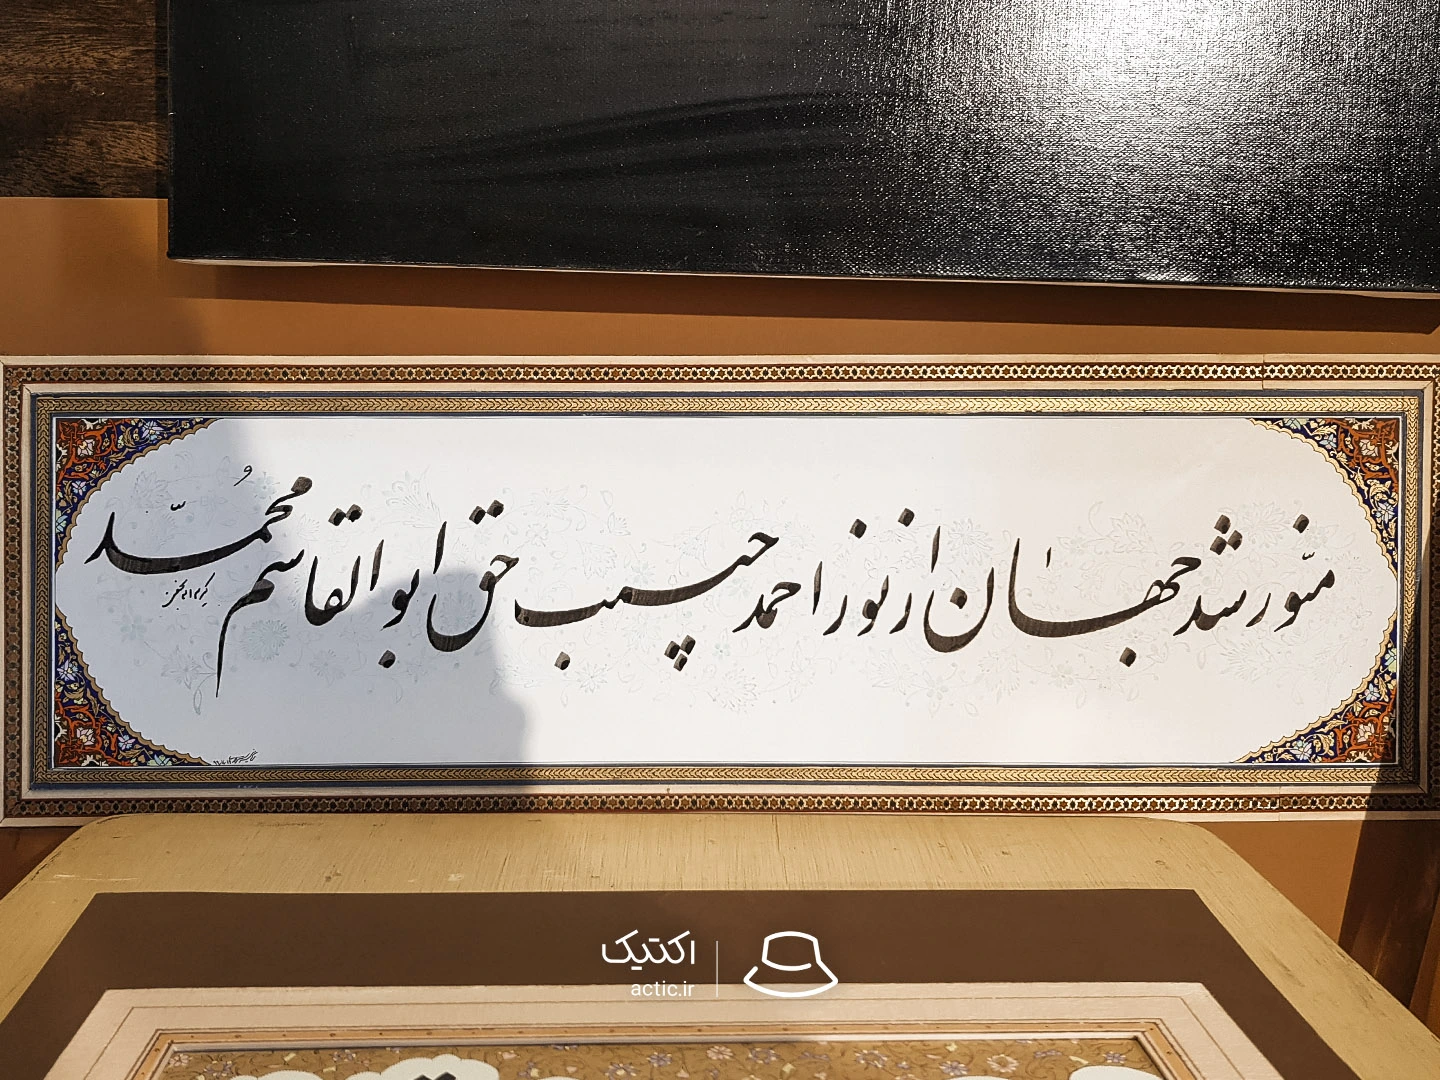 منّور شد جهان از نور احمد حبیب حق ابوالقاسم محمّد
اکتیک
actic.ir